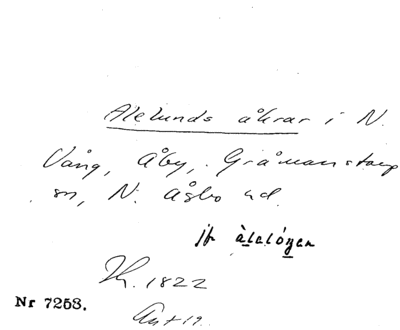 Alelunds åkrar i N.
Vång, Åby, Gråmanstorp
sn, N. Åsbo hd.
jfr àlalógen
Lh. 1822
Nr 7258.
Ant 19.